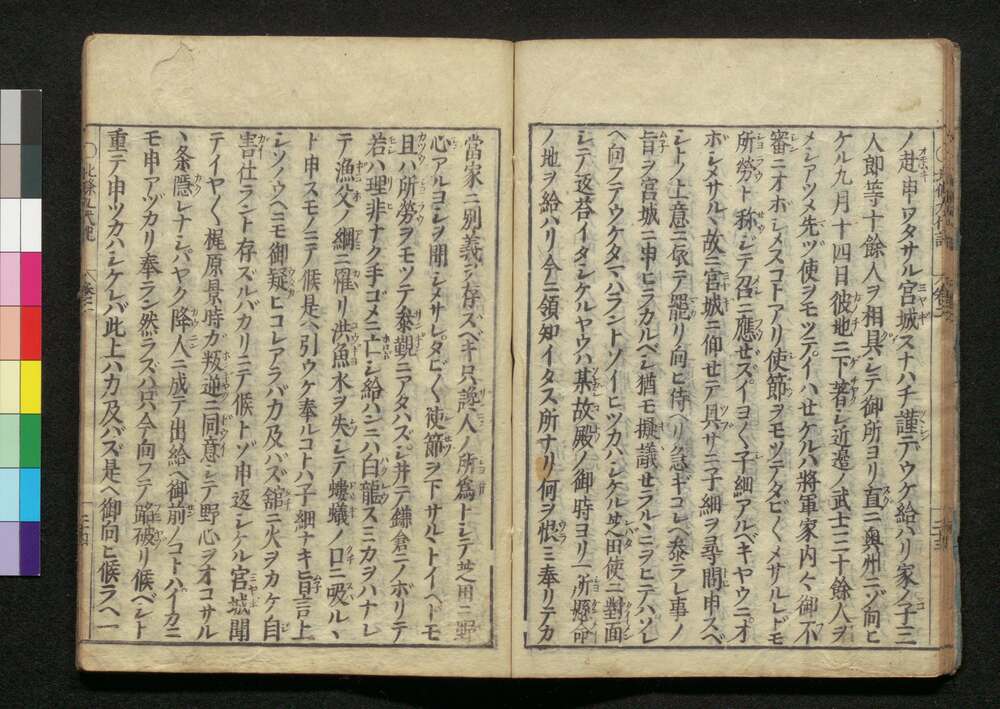 ノ赴申ワタサル宮城スナハチ謹テウケ給ハリ家ノ子三
人郎等十餘人ヲ相具シテ御所ヨリ直ニ奥州ニゾ向ヒ
ケル九月十四日彼地ニ下着シ近邊ノ武士三十餘人ヲ
メシアツメ先ヅ使ヲモツテイハせケルハ將軍家内々御不
審ニオホシメスコトアリ使節ヲモツテタビ〱メサルレドモ
所勞ト称シテ召ニ應せズイヨ〱子細アルベキヤウニオ
ホシメサルヽ故ニ宮城ニ仰せテ具サニ子細ヲ尋問申スベ
シトノ上意ニ依テ罷リ向ヒ侍ヘリ急ギコレヘ参ラレ事ノ
旨ヲ宮城ニ申ヒラカルベシ猶モ擬議せラルヽニヲヒテハソレ
ヘ向フテウケタマハラントソイヒツカハシケル芝田使ニ對面
シテ返荅イタシケルヤウハ某故殿ノ御時ヨリ一所懸命
ノ地ヲ給ハリ今ニ領知イタス所ナリ何ヲ恨ミ奉リテカ
當家ニ別義ヲ存スベキ只讒人ノ所爲トシテ芝田ニ野
心アルヨシヲ聞シメサレタビ〱使節ヲ下サルトイヘドモ
且ハ所勞ヲモツテ参覲ニアタハズシ并テ鎌倉ニノボリテ
若ハ理非ナク手ゴメニ亡シ給ハンニハ白龍スミカヲハナレ
テ漁父ノ網ニ罹リ洪魚水ヲ失シテ螻蟻ノ口ニ吸ルヽ
ト申スモノニテ候是ヘ引ウケ奉ルコトハ子細ナキ旨言上
シソノウヘニモ御疑ヒコレアラバカ及ハズ舘ニ火ヲカケ自
害仕ラント存ズルバカリニテ候トゾ申返シケル宮城聞
テイヤ〱梶原景時カ叛逆ニ同意シテ野心ヲオコサル
ヽ条隱レナシハヤク降人ニ成テ出給ヘ御前ノコトハイカニ
モ申アヅカリ奉ラン然ラズハ只今向フテ蹈破リ候ベシト
重テ申ツカハシケレバ此上ハカ及バズ是ヘ御向ヒ候ラヘ一